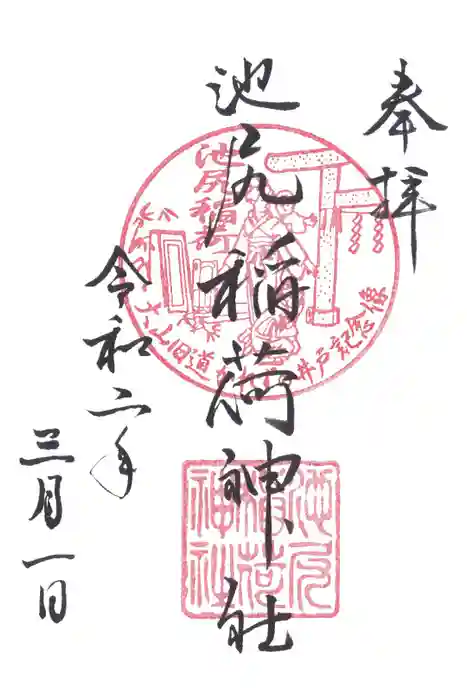 奉拝
池尻稲荷神社
令和二年
三月一日
池尻稲荷
大山旧道
井戸記念像
池尻稲荷神社